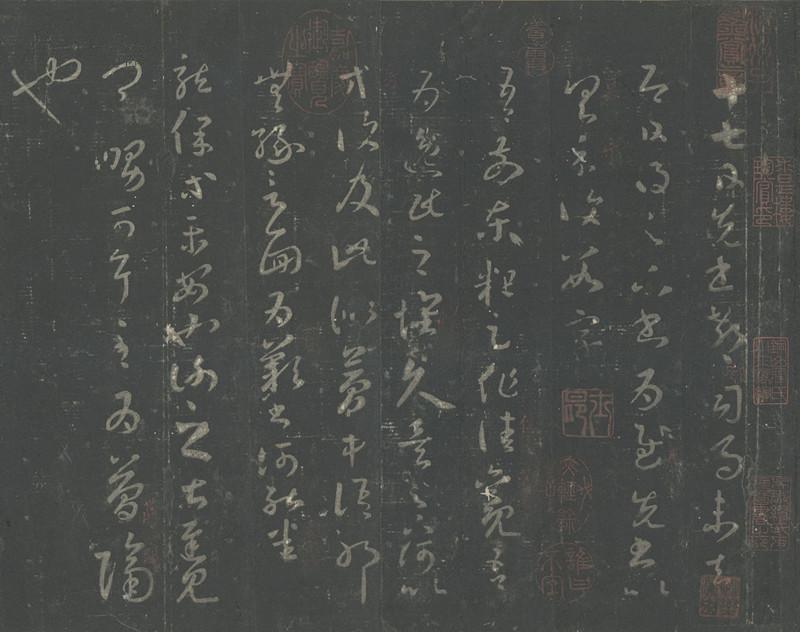 十七日先書郗司馬未去
即日得足下書為慰先書以
具示復數字
吾前東粗足作佳觀吾
為逸民之懷久矣足下何以
方復及此似夢中語耶
無緣言面為歎書何能悉
龍保等平安也謝之甚遲見
卿舅可耳至為簡隔
也